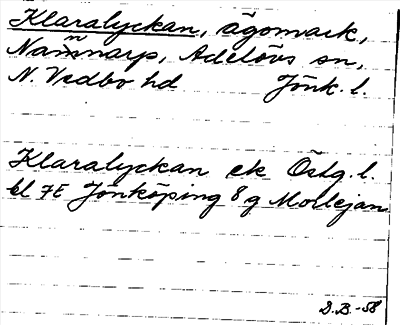 Klaralyckan, ägomark,
Namnarp, Adelövs sn,
N. Vedbo hd Jönk. l.
Klaralyckan ek Östg. l.
bl 7E Jönköping 8 g Morlejan
D.B. -58